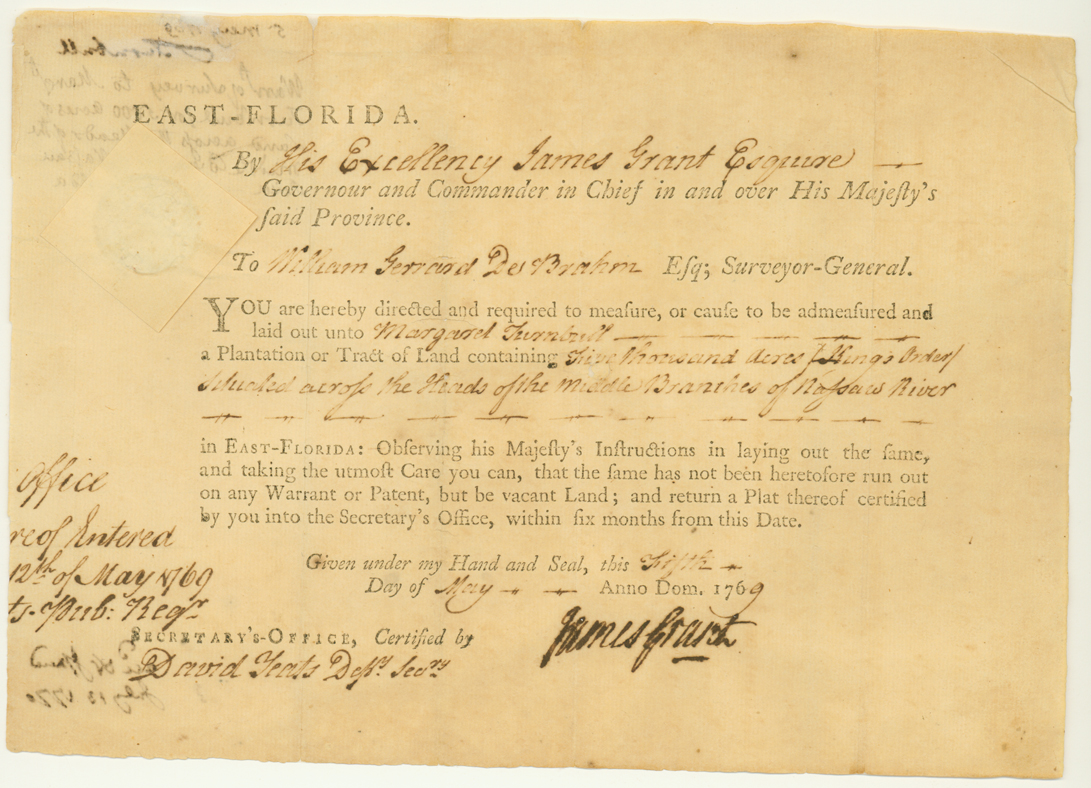 EAST-FLORIDA.
By His Excellency James Grant Esquire
Governour and Commander in Chief in and over His Majeſty's
ſaid Province.
To William Gerrard De Brahm Eſq; Surveyor-General.
YOU are hereby directed and required to meaſure, or cauſe to be admeaſured and
laid out unto Margaret Turnbull
a Plantation or Tract of Land containing Five thousand Acres [King's Order]
Situated acroſs the Heads of the Middle Branches of Naſsaw River
in EAST-FLORIDA: Obſerving his Majeſty's Inſtructions in laying out the ſame,
and taking the utmoſt Care you can, that the ſame has not been heretofore run out
on any Warrant or Patent, but be vacant Land; and return a Plat thereof certified
by you into the Secretary's Office, within ſix months from this Date.
Office
re of Entered
12th of May 1769
ts. Pub: Regr
Given under my Hand and Seal, this Fifth
Day of May Anno Dom. 1769
James Grant
SECRETARY'S-OFFICE, Certified by
David Yeats Depy. Secry